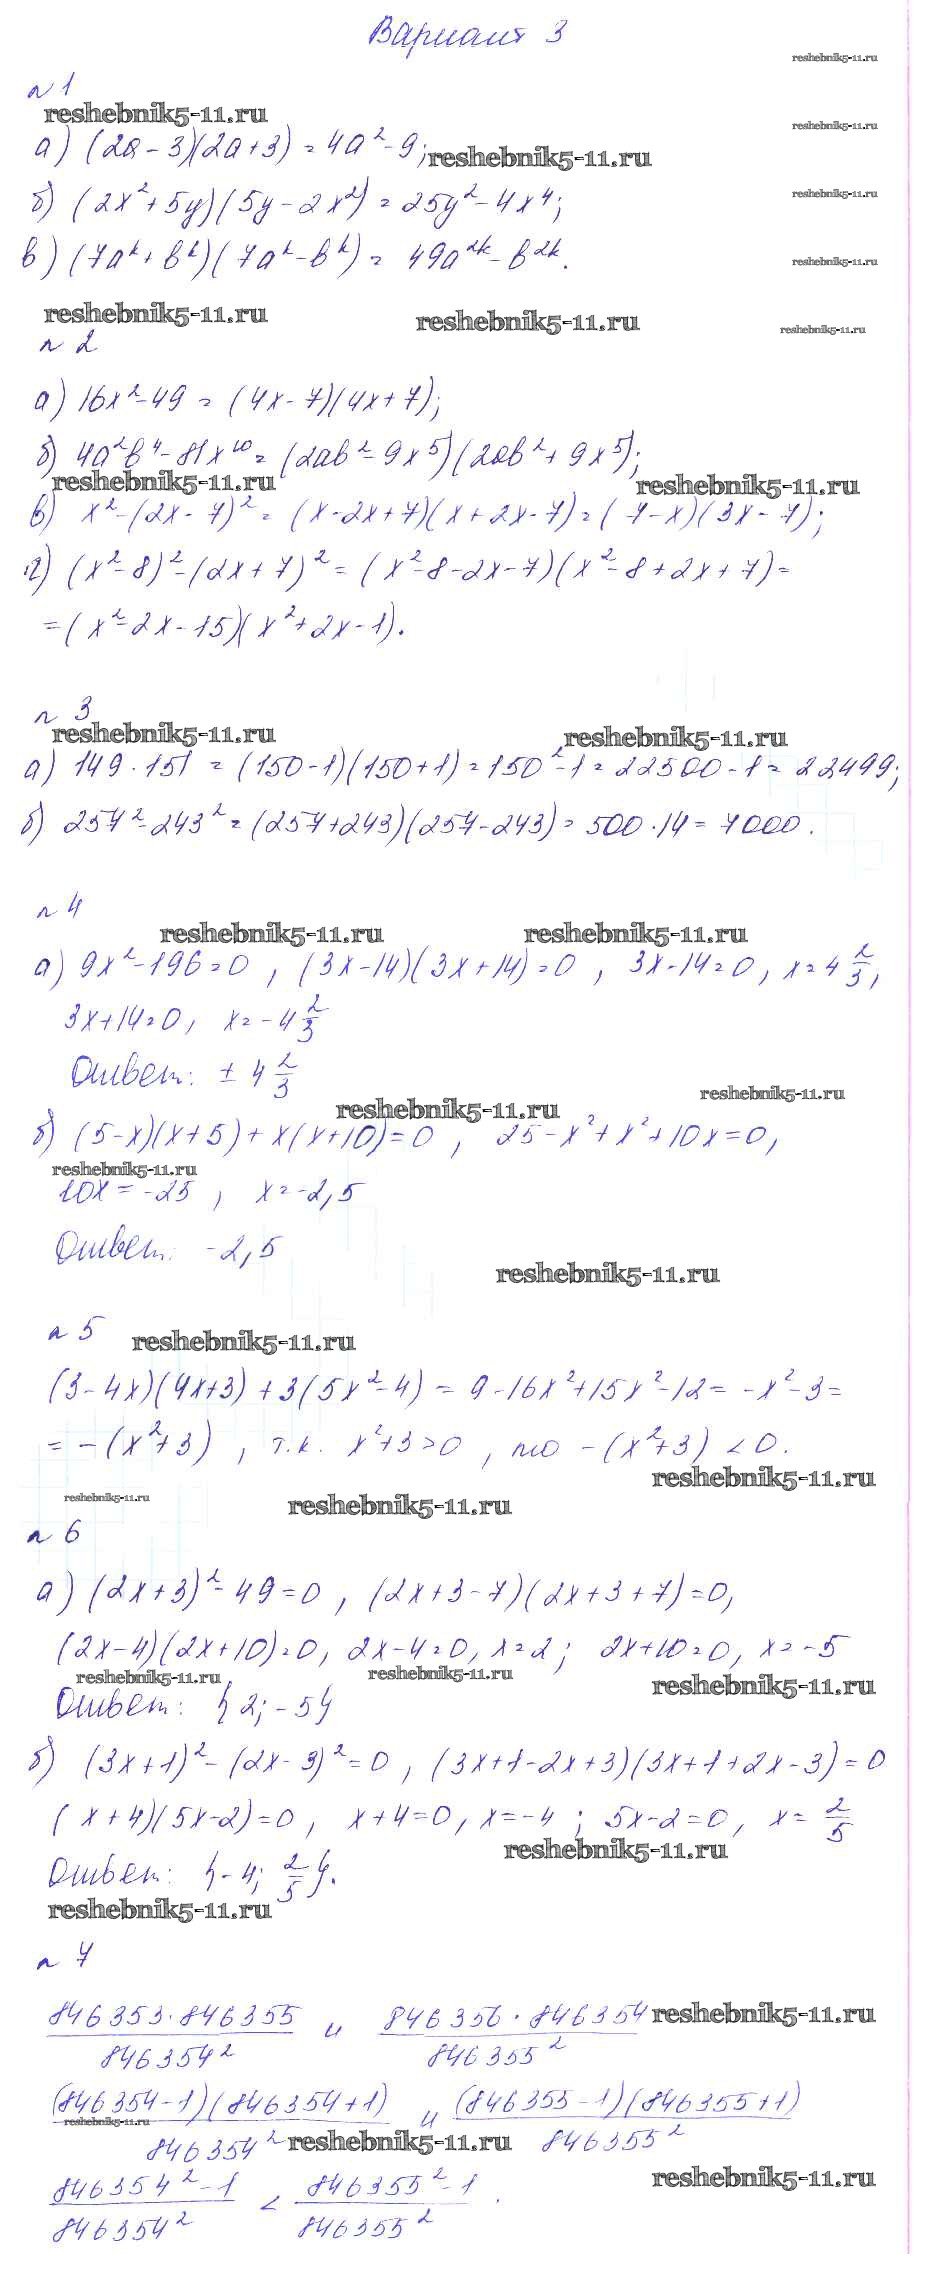 Вариант 3
reshebnik5-11.ru
№ 1
reshebnik5-11.ru
reshebnik5-11.ru
а) (2a - 3)(2a + 3) = 4a² - 9;
reshebnik5-11.ru
reshebnik5-11.ru
б) (2x² + 5y)(5y - 2x²) = 25y² - 4x⁴;
в) (7aᵏ + bᵏ)(7aᵏ - bᵏ) = 49a²ᵏ - b²ᵏ.
reshebnik5-11.ru
reshebnik5-11.ru
reshebnik5-11.ru
reshebnik5-11.ru
№ 2
а) 16x² - 49 = (4x - 7)(4x + 7);
б) 4a²b⁴ - 81x¹⁰ = (2ab² - 9x⁵)(2ab² + 9x⁵);
reshebnik5-11.ru
reshebnik5-11.ru
в) x² - (2x - 7)² = (x - 2x + 7)(x + 2x - 7) = (7 - x)(3x - 7);
г) (x² - 8)² - (2x + 7)² = (x² - 8 - 2x - 7)(x² - 8 + 2x + 7) =
= (x² - 2x - 15)(x² + 2x - 1).
№ 3
reshebnik5-11.ru
reshebnik5-11.ru
а) 149 · 151 = (150 - 1)(150 + 1) = 150² - 1 = 22500 - 1 = 22499;
б) 257² - 243² = (257 + 243)(257 - 243) = 500 · 14 = 7000.
№ 4
reshebnik5-11.ru
reshebnik5-11.ru
а) 9x² - 196 = 0, (3x - 14)(3x + 14) = 0, 3x - 14 = 0, x = 4 2/3,
3x + 14 = 0, x = -4 2/3
Ответ: ± 4 2/3
reshebnik5-11.ru
reshebnik5-11.ru
б) (5 - x)(x + 5) + x(x + 10) = 0, 25 - x² + x² + 10x = 0,
reshebnik5-11.ru
10x = -25, x = -2,5
Ответ: -2,5
reshebnik5-11.ru
№ 5
reshebnik5-11.ru
(3 - 4x)(4x + 3) + 3(5x² - 4) = 9 - 16x² + 15x² - 12 = -x² - 3 =
= -(x² + 3), т.к. x² + 3 > 0, то -(x² + 3) < 0.
reshebnik5-11.ru
reshebnik5-11.ru
reshebnik5-11.ru
№ 6
а) (2x + 3)² - 49 = 0, (2x + 3 - 7)(2x + 3 + 7) = 0,
(2x - 4)(2x + 10) = 0, 2x - 4 = 0, x = 2; 2x + 10 = 0, x = -5
reshebnik5-11.ru
reshebnik5-11.ru
reshebnik5-11.ru
Ответ: {2; -5}
б) (3x + 1)² - (2x - 3)² = 0, (3x + 1 - 2x + 3)(3x + 1 + 2x - 3) = 0
(x + 4)(5x - 2) = 0, x + 4 = 0, x = -4; 5x - 2 = 0, x = 2/5
reshebnik5-11.ru
Ответ: {-4; 2/5}.
reshebnik5-11.ru
№ 7
846353 · 846355 / 846354² и 846356 · 846354 / 846355²
reshebnik5-11.ru
(846354 - 1)(846354 + 1) / 846354² и (846355 - 1)(846355 + 1) / 846355²
reshebnik5-11.ru
reshebnik5-11.ru
846354² - 1 / 846354² < 846355² - 1 / 846355².
reshebnik5-11.ru